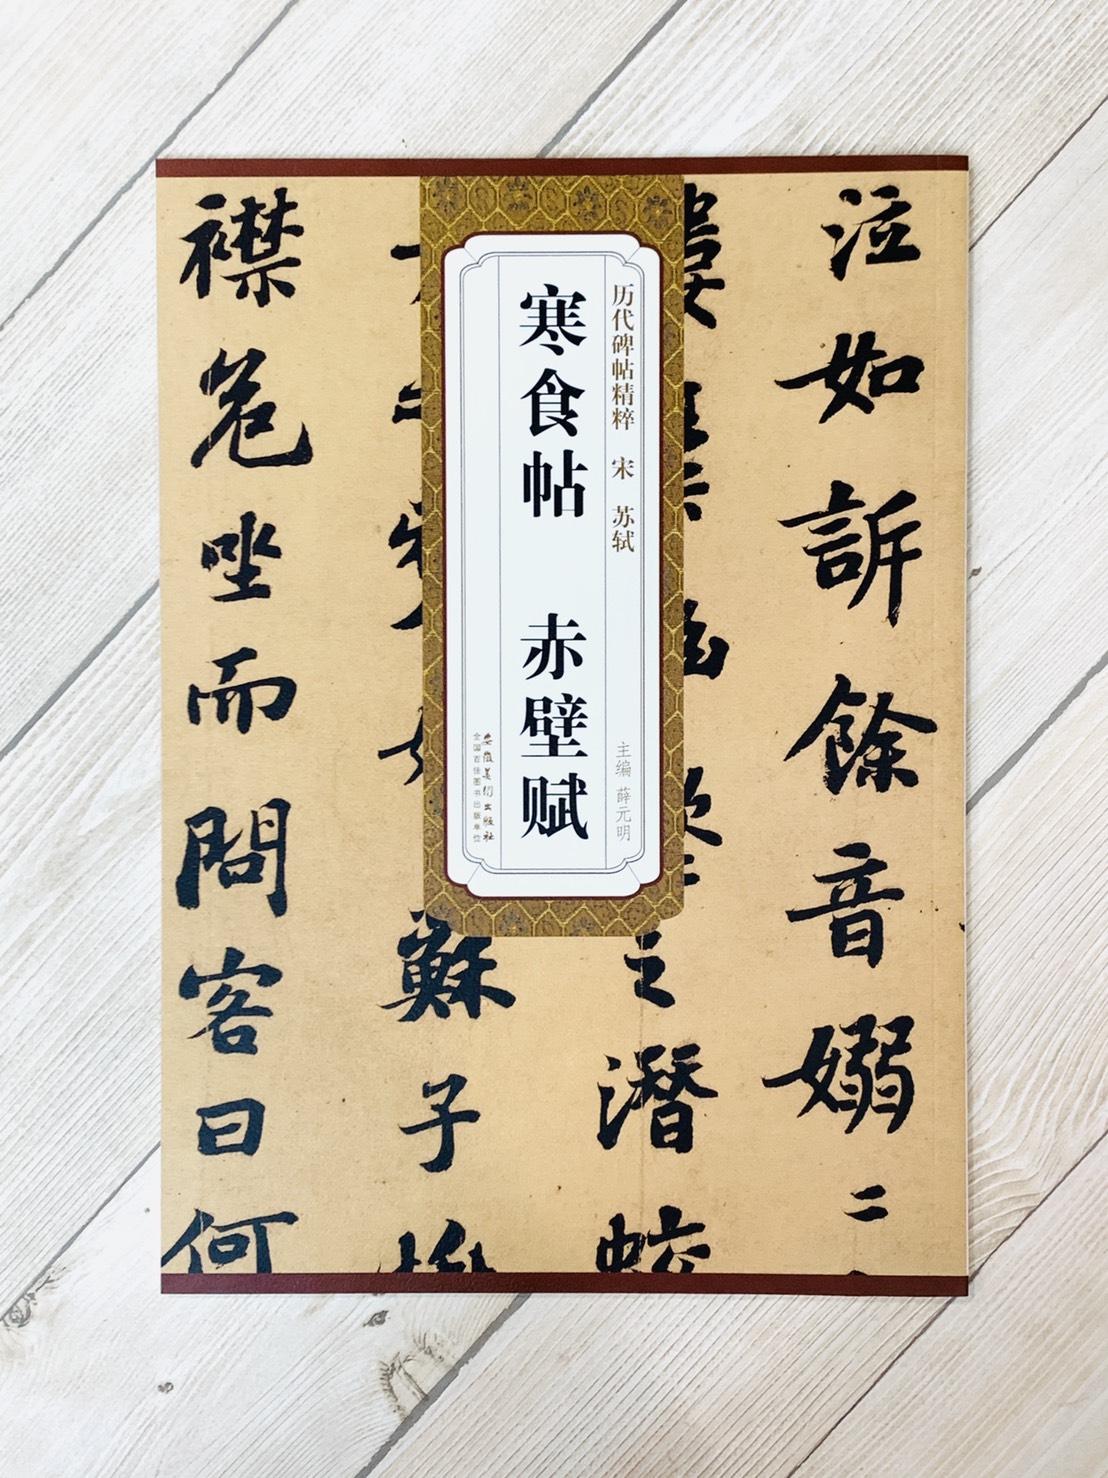 泣如訴餘音嫋二
之潛蛟
历代碑帖精粹 宋 苏轼
主编 薛元明
寒食帖 赤壁赋
安徽美術出版社
全国百佳图书出版单位
蘇子愀
襟危坐而問客曰何